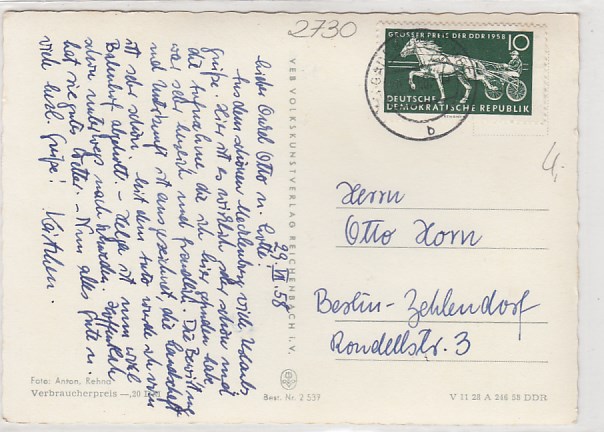 2730
29. VII. 58
Lieber Onkel Otto u. Lotte!
Aus dem schönen Mecklenburg viele Urlaubs
grüße. Hier ist es wirklich sehr schön und
die Aufnahme die ich hier gefunden habe,
war sehr herzlich und freundlich. Die Bewirtung
und Unterkunft ist ausgezeichnet, die Landschaft
ist sehr schön. Mit dem Auto wurde ich vom
Bahnhof abgeholt. – Helga ist nun wohl
schon unterwegs nach Schweden. Hoffentlich
hat sie gutes Wetter. – Nun alles Gute u.
viele herzl. Grüße! Kathleen.
Foto: Anton, Rehna
Verbraucherpreis —,20 DM
VEB VOLKSKUNSTVERLAG REICHENBACH I. V.
Best. Nr. 2 537
GROSSER PREIS DER DDR 1958
10
DEUTSCHE
DEMOKRATISCHE REPUBLIK
b
4,-
Herrn
Otto Horn
Berlin-Zehlendorf
Rondellstr. 3
V 11 28 A 246 58 DDR